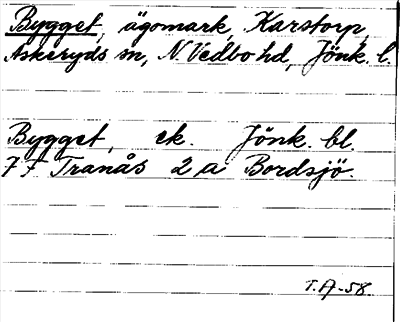 Bygget, ägomark, Karstorp,
Askeryds sn, N. Vedbo hd, Jönk. l.
Bygget, ek. Jönk. bl.
7 F Tranås 2 a Bordsjö.
T.A-58.